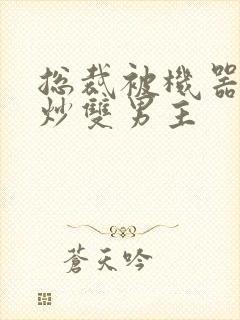 总裁被機器
炒雙男主
蒼天吟